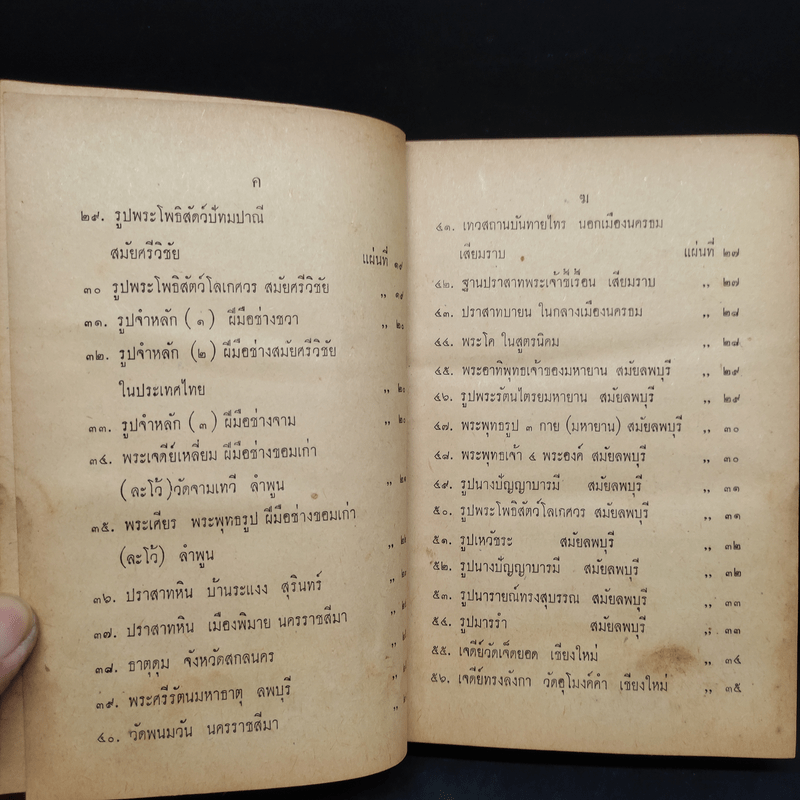 ค
๒๙. รูปพระโพธิสัตว์ปัทมปาณี
สมัยศรีวิชัย แผ่นที่ ๑๙
๓๐ รูปพระโพธิสัตว์โลเกศวร สมัยศรีวิชัย ,, ๑๙
๓๑. รูปจำหลัก (๑) ฝีมือช่างชวา ,, ๒๐
๓๒. รูปจำหลัก (๒) ฝีมือช่างสมัยศรีวิชัย
ในประเทศไทย ,, ๒๐
๓๓. รูปจำหลัก (๓) ฝีมือช่างจาม ,, ๒๐
๓๔. พระเจดีย์เหลี่ยม ฝีมือช่างขอมเก่า
(ละโว้) วัดจามเทวี ลำพูน ,, ๒๑
๓๕. พระเศียร พระพุทธรูป ฝีมือช่างขอมเก่า
(ละโว้) ลำพูน ,,
๓๖. ปราสาทหิน บ้านระแงง สุรินทร์ ,,
๓๗. ปราสาทหิน เมืองพิมาย นครราชสีมา ,,
๓๘. ธาตุดุม จังหวัดสกลนคร ,,
๓๙. พระศรีรัตนมหาธาตุ ลพบุรี ,,
๔๐. วัดพนมวัน นครราชสีมา ,,
ฆ
๔๑. เทวสถานบันทายไทร นอกเมืองนครธม
เสียมราบ แผ่นที่ ๒๗
๔๒. ฐานปราสาทพระเจ้าขี้เรื้อน เสียมราบ ,, ๒๗
๔๓. ปราสาทบายน ในกลางเมืองนครธม ,, ๒๘
๔๔. พระโค ในสูตรนิคม ,, ๒๘
๔๕. พระอาทิพุทธเจ้าของมหายาน สมัยลพบุรี ,, ๒๙
๔๖. รูปพระรัตนไตรยมหายาน สมัยลพบุรี ,, ๒๙
๔๗. พระพุทธรูป ๓ กาย (มหายาน) สมัยลพบุรี ,, ๓๐
๔๘. พระพุทธเจ้า ๔ พระองค์ สมัยลพบุรี ,, ๓๐
๔๙. รูปนางปัญญาบารมี สมัยลพบุรี ,, ๓๑
๕๐. รูปพระโพธิสัตว์โลเกศวร สมัยลพบุรี ,, ๓๑
๕๑. รูปเหวัชระ สมัยลพบุรี ,, ๓๒
๕๒. รูปนางปัญญาบารมี สมัยลพบุรี ,, ๓๒
๕๓. รูปนารายณ์ทรงสุบรรณ สมัยลพบุรี ,, ๓๓
๕๔. รูปมารรำ สมัยลพบุรี ,, ๓๓
๕๕. เจดีย์วัดเจ็ดยอด เชียงใหม่ ,, ๓๔
๕๖. เจดีย์ทรงลังกา วัดอุโมงค์คำ เชียงใหม่ ,, ๓๕